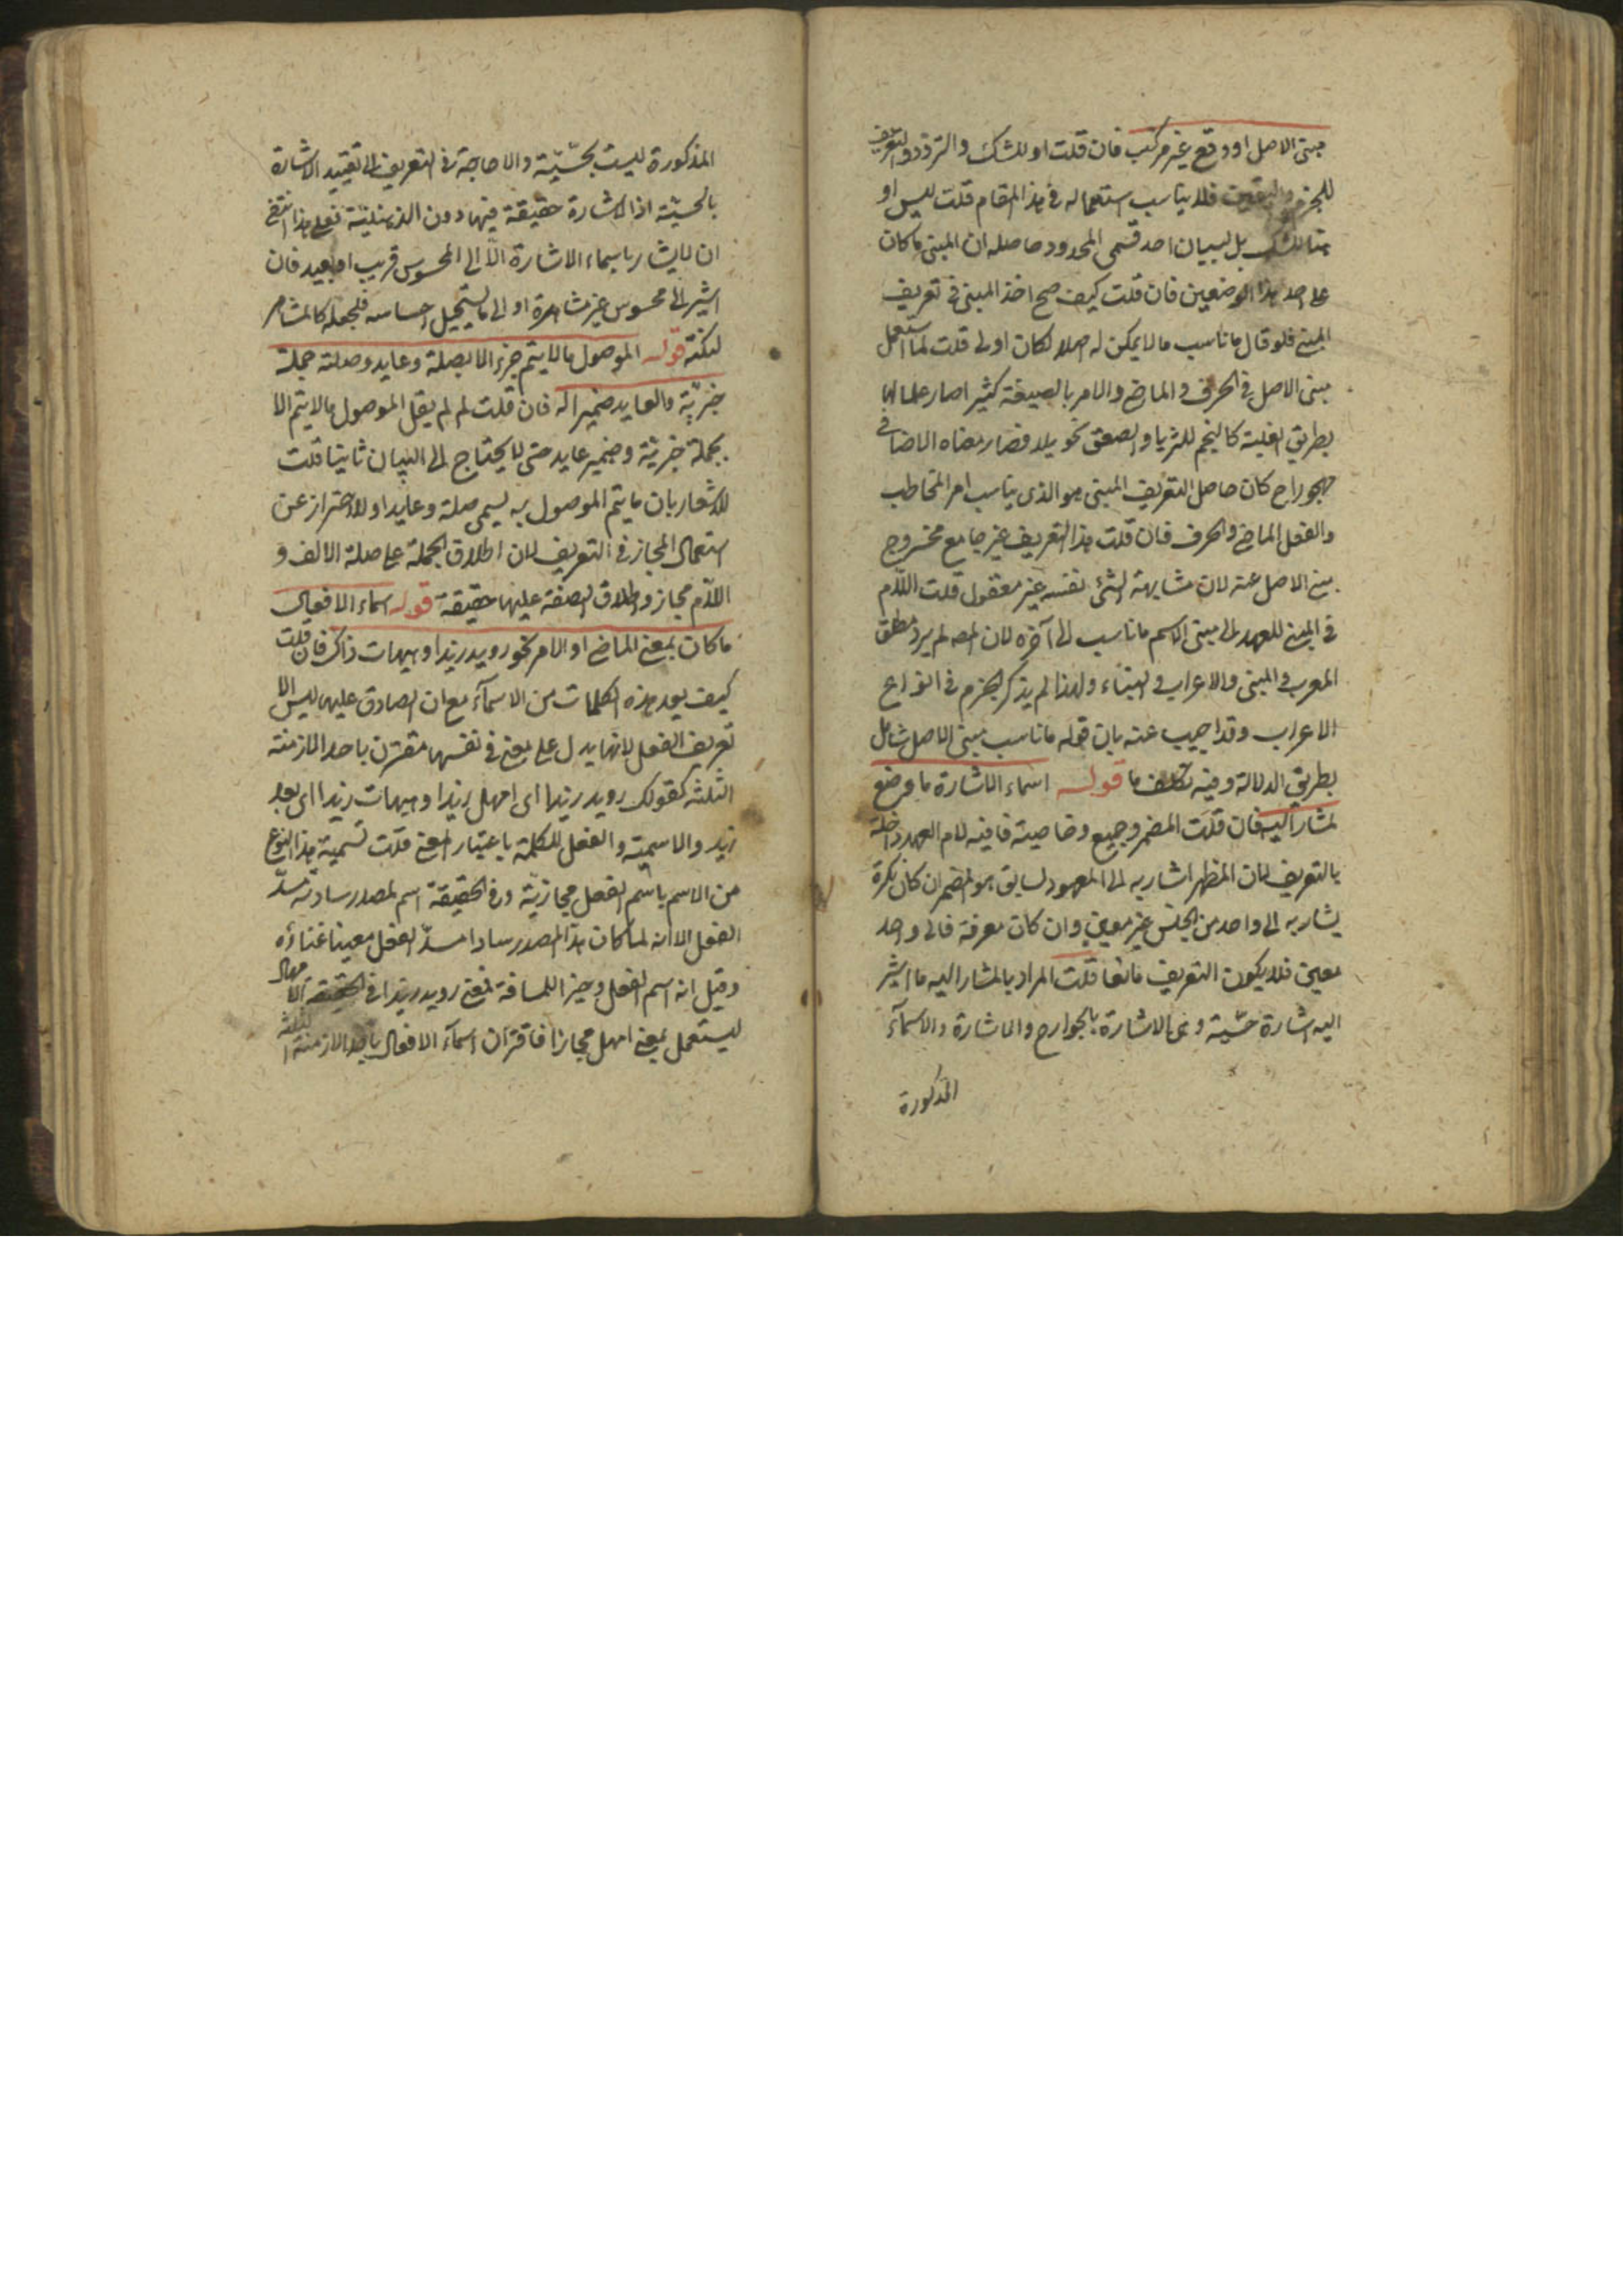 مبنى الاصل او وقع غير مركب فان قلت او للشك والتردد والتعريف
للجزم واليقين فلا يناسب استعماله في هذا المقام قلت ليس او
هنا للشك بل لبيان احد قسمي المحدود حاصله ان المبنى ما كان
على احد هذا الوضعين فان قلت كيف صح اخذ المبنى في تعريف
المبنى فلو قال ما ناسب ما لا يمكن له اصلا لكان اولى قلت لما استعمل
مبنى الاصل في الحرف والماضى والامر بالصيغة كثيرا صار علما لها
بطريق الغلبة كالنجم للثريا والصعق لخويلد فصار معناه الماضا في
مهجورا ح كان حاصل التعريف المبنى هو الذى يناسب امر المخاطب
والفعل الماضى والحرف فان قلت هذا التعريف غير جامع لخروج
مبنى الاصل عنه لان مشابهة الشئ نفسه غير معقول قلت اللام
في المبنى للعهد اى مبنى الاسم ما ناسب الى آخره لان المصـ لم يرد مطلق
المعرب والمبنى والاعراب والبناء ولهذا لم يذكر الجزم في انواع
الاعراب وقد اجيب عنه بان قوله ما ناسب مبنى الاصل شامل
بطريق الدلالة وفيه تكلف ما قوله اسماء الاشارة ما وضع
لمشار اليه فان قلت المضمر وجميع وخاصية ما فيه لام العهد داخلة
بالتعريف لان المظهر اشار به الى المعهود لسابق هو المضمر ان كان نكرة
يشار به الى واحد من الجنس غير معين وان كان معرفة فالى واحد
معين فلا يكون التعريف مانعا قلت المراد بالمشار اليه ما اشير
اليه اشارة حسّية وهى الاشارة بالجوارح والاشارة والاسمآء
المذكورة
المذكورة ليست بحسّيّة والا حاجة في التعريف الى تقييد الاشارة
بالحسيّة اذ الاشارة حقيقة فيها دون الذهنيّة فعلى هذا اقتضى
ان لا يشار باسماء الاشارة الّا الى المحسوس قريب او بعيد فان
اشير الى محسوس غير مشاهدة او الى ما يستحيل احساسه فلجعله كالمشاهر
لنكتة قوله الموصول ما لا يتم جزء الا بصلة وعايد وصلته جملة
خبريّة والعايد ضمير له فان قلت لم لم يقل الموصول ما لا يتم الا
بجملة خبرية وضمير عايد حتى لا يحتاج الى البيان ثانيا قلت
للاشعار بان ما يتم الموصول به يسمى صلة وعايدا وللاحتراز عن
استعمال المجاز في التعريف لان اطلاق الجملة على صلة الالف و
اللّام مجاز واطلاق الصفة عليها حقيقة قوله اسماء الافعال
ما كان بمعنى الماضى او الامر نحو رويد زيدا وهيهات ذاك فان قلت
كيف يعد هذه الكلمات من الاسمآء مع ان الصادق عليها ليس الا
تعريف الفعل لانها يدل على معنى في نفسها مقترن باحد الازمنة
الثلثة كقولك رويد زيدا اى امهل زيدا وهيهات زيدا اى بعد
زيد والاسمية والفعل للكلمة باعتبار المعنى قلت تسمية هذا النوع
من الاسم باسم الفعل مجازيّة وفى الحقيقة اسم لمصدر ساد مسدّ
الفعل الا انه لما كان هذا المصدر سادا مسدّ الفعل مغنيا غناؤه
وقيل انه اسم الفعل فمعنى رويد زيدا في الحقيقة الامهال
ليستعمل بمعنى امهل مجازا فاقتران اسمآء الافعال باحد الازمنة الثلثة